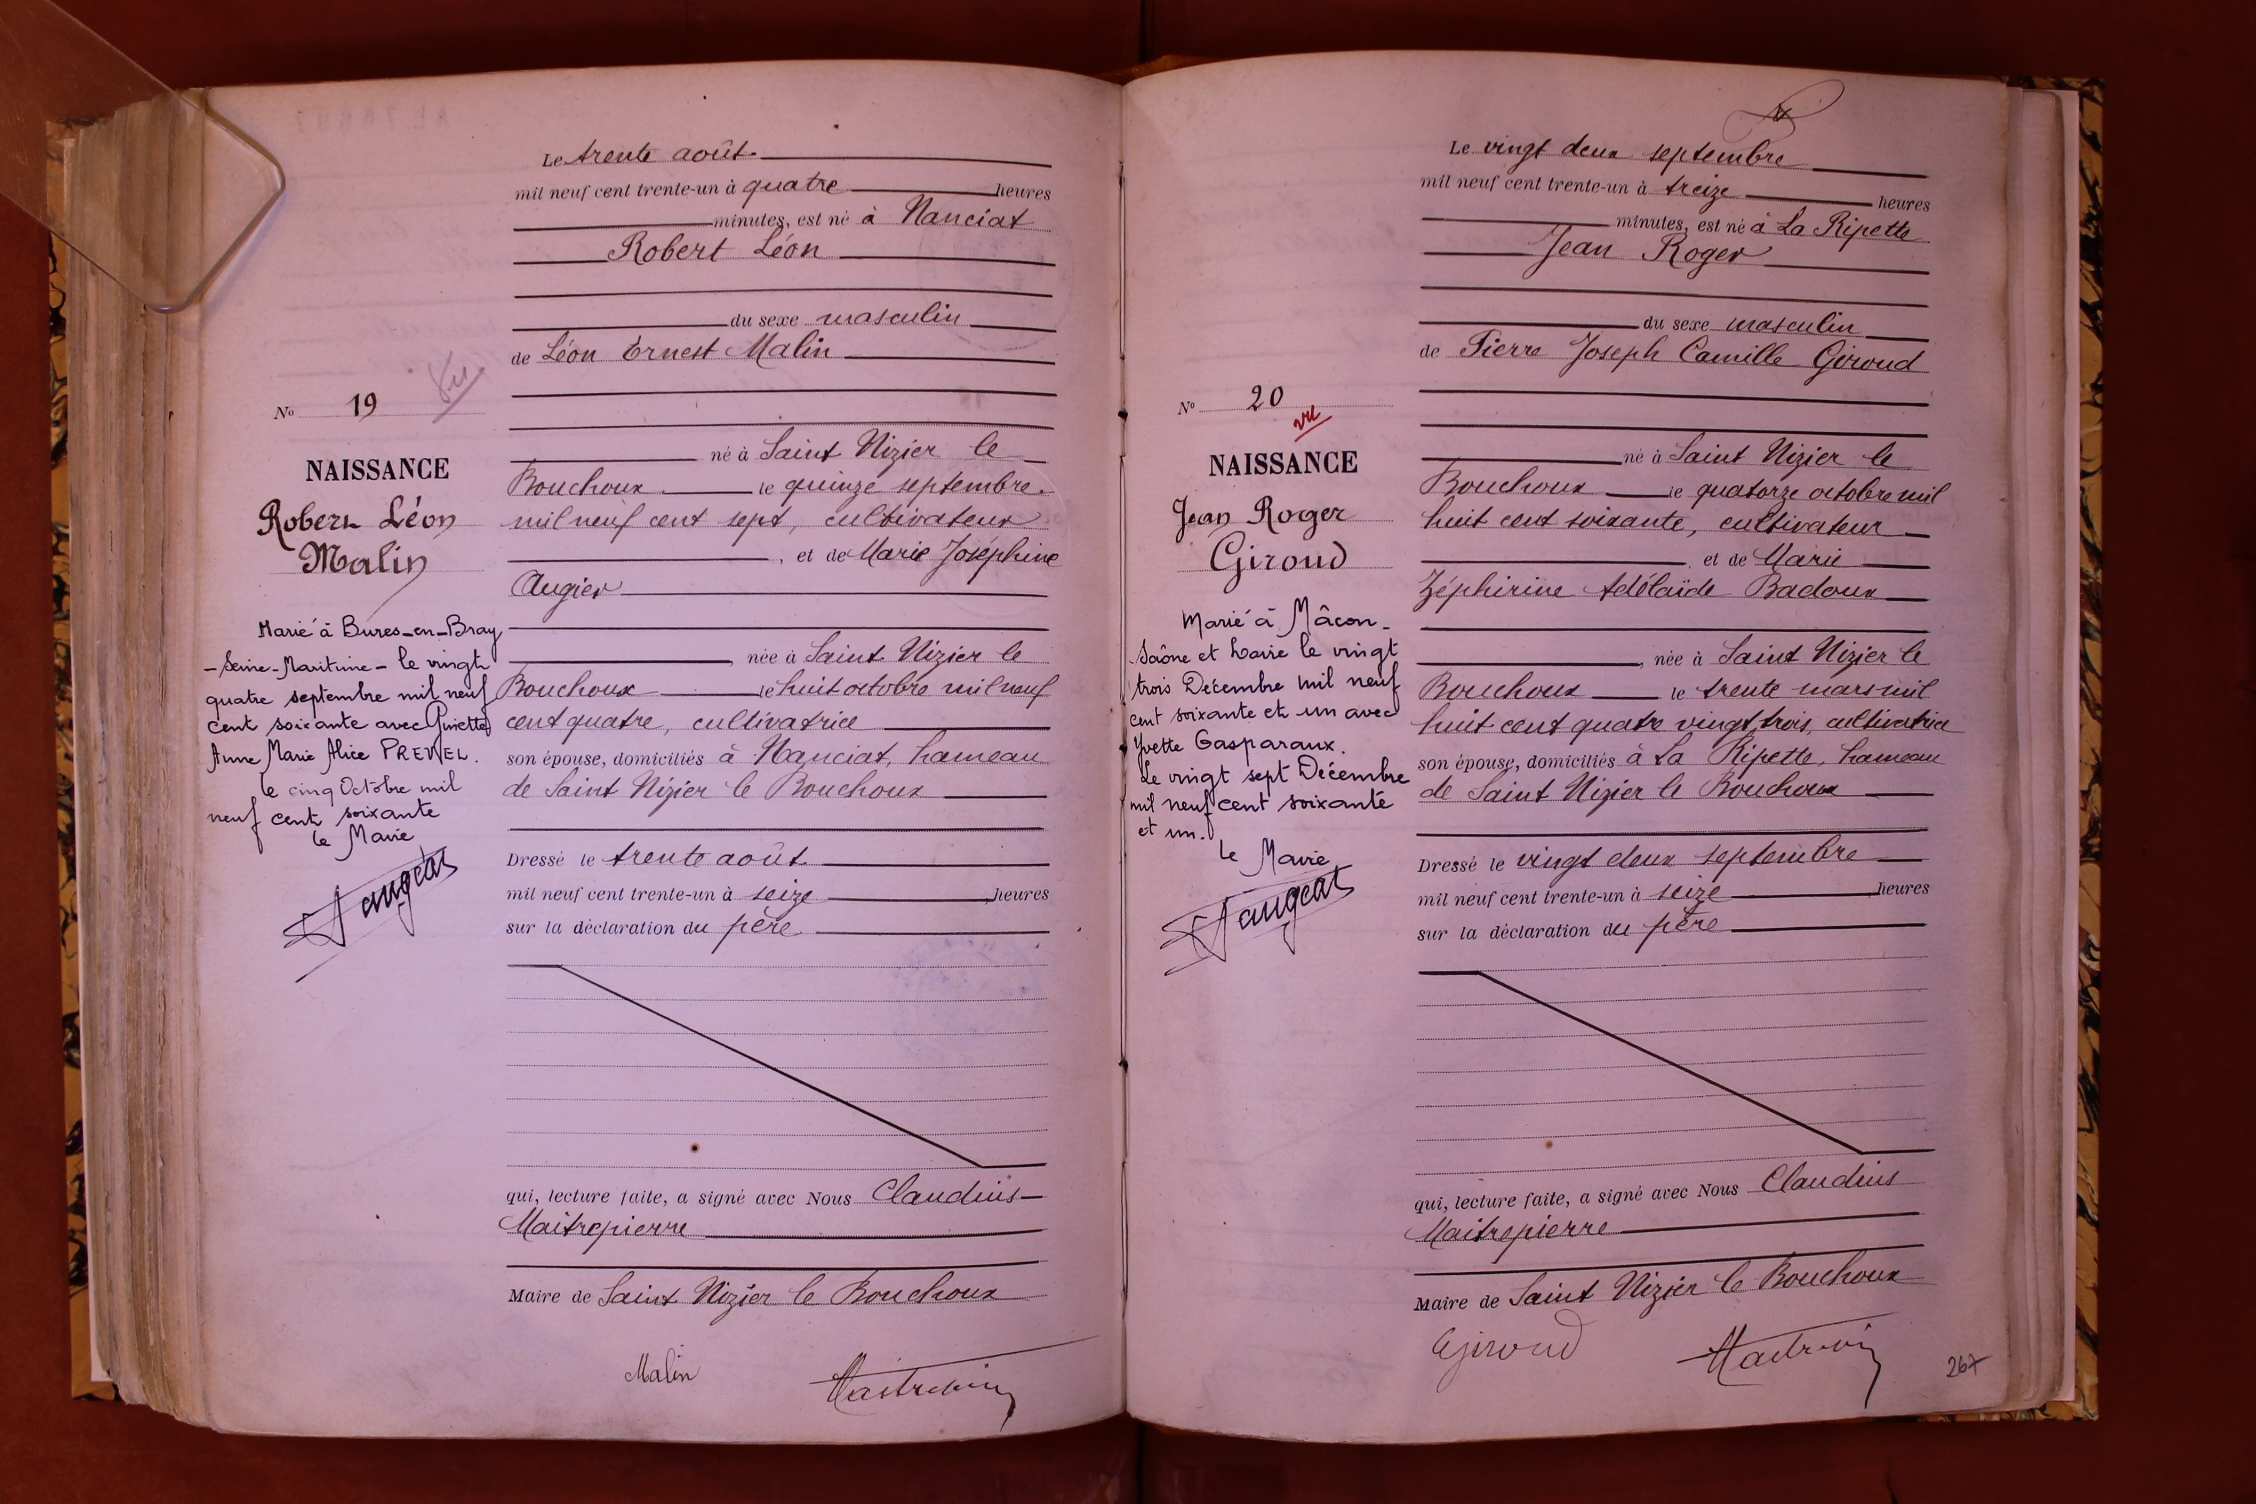 Le trente août
mil neuf cent trente-un à quatre heures
minutes, est né à Nanciat
Robert Léon
du sexe masculin
de Léon Ernest Malin
né à Saint Nizier le
Bouchoux le quinze septembre
mil neuf cent sept, cultivateur
, et de Marie Joséphine
Augier
née à Saint Nizier le
Bouchoux le huit octobre mil neuf
cent quatre, cultivatrice
son épouse, domiciliés à Nanciat, hameau
de Saint Nizier le Bouchoux
Dressé le trente août
mil neuf cent trente-un à seize heures
sur la déclaration du père
qui, lecture faite, a signé avec Nous Claudius
Maitrepierre
Maire de Saint Nizier le Bouchoux
Malin
No 19
Vu
NAISSANCE
Robert Léon
Malin
Marié à Bures-en-Bray
- Seine-Maritime - le vingt
quatre septembre mil neuf
cent soixante avec
Anne Marie Alice PREVEL.
le cinq Octobre mil
neuf cent soixante
le Maire
Le vingt deux septembre
mil neuf cent trente-un à treize heures
minutes, est né à La Ripette
Jean Roger
du sexe masculin
de Pierre Joseph Camille Giroud
né à Saint Nizier le
Bouchoux le quatorze octobre mil
huit cent soixante, cultivateur
et de Marie
Zéphirine Adélaïde Badoux
, née à Saint Nizier le
Bouchoux le trente mars mil
huit cent quatre vingt trois, cultivatrice
son épouse, domiciliés à La Ripette, hameau
de Saint Nizier le Bouchoux
Dressé le vingt deux septembre
mil neuf cent trente-un à seize heures
sur la déclaration du père
qui, lecture faite, a signé avec Nous Claudius
Maitrepierre
Maire de Saint Nizier le Bouchoux
Giroud
267
No 20
vu
NAISSANCE
Jean Roger
Giroud
Marié à Mâcon -
Saône et Loire le vingt
trois Décembre mil neuf
cent soixante et un avec
Yvette Gasparaux.
Le vingt sept Décembre
mil neuf cent soixante
et un.
le Maire